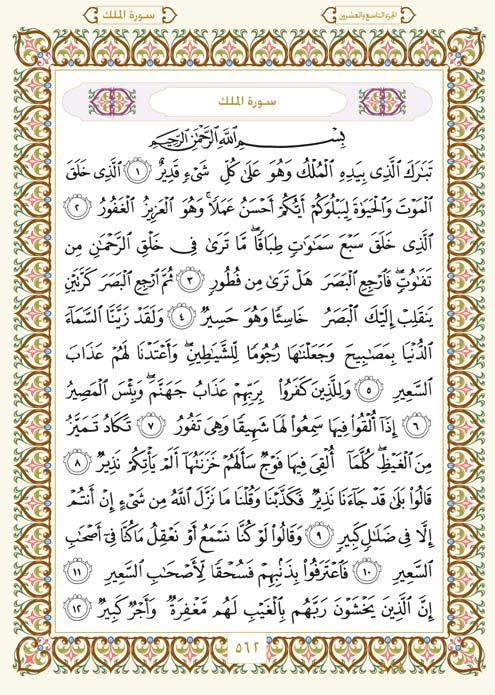 الجزء التاسع والعشرون
سورة الملك
سورة الملك
بِسْمِ اللَّهِ الرَّحْمَٰنِ الرَّحِيمِ
تَبَٰرَكَ ٱلَّذِى بِيَدِهِ ٱلْمُلْكُ وَهُوَ عَلَىٰ كُلِّ شَىْءٍ قَدِيرٌ ١ ٱلَّذِى خَلَقَ
ٱلْمَوْتَ وَٱلْحَيَوٰةَ لِيَبْلُوَكُمْ أَيُّكُمْ أَحْسَنُ عَمَلًا ۚ وَهُوَ ٱلْعَزِيزُ ٱلْغَفُورُ ٢
ٱلَّذِى خَلَقَ سَبْعَ سَمَٰوَٰتٍ طِبَاقًا ۖ مَّا تَرَىٰ فِى خَلْقِ ٱلرَّحْمَٰنِ مِن
تَفَٰوُتٍ ۖ فَٱرْجِعِ ٱلْبَصَرَ هَلْ تَرَىٰ مِن فُطُورٍ ٣ ثُمَّ ٱرْجِعِ ٱلْبَصَرَ كَرَّتَيْنِ
يَنقَلِبْ إِلَيْكَ ٱلْبَصَرُ خَاسِئًا وَهُوَ حَسِيرٌ ٤ وَلَقَدْ زَيَّنَّا ٱلسَّمَآءَ
ٱلدُّنْيَا بِمَصَٰبِيحَ وَجَعَلْنَٰهَا رُجُومًا لِّلشَّيَٰطِينِ ۖ وَأَعْتَدْنَا لَهُمْ عَذَابَ
ٱلسَّعِيرِ ٥ وَلِلَّذِينَ كَفَرُوا۟ بِرَبِّهِمْ عَذَابُ جَهَنَّمَ ۖ وَبِئْسَ ٱلْمَصِيرُ
٦ إِذَآ أُلْقُوا۟ فِيهَا سَمِعُوا۟ لَهَا شَهِيقًا وَهِىَ تَفُورُ ٧ تَكَادُ تَمَيَّزُ
مِنَ ٱلْغَيْظِ ۖ كُلَّمَآ أُلْقِىَ فِيهَا فَوْجٌ سَأَلَهُمْ خَزَنَتُهَآ أَلَمْ يَأْتِكُمْ نَذِيرٌ ٨
قَالُوا۟ بَلَىٰ قَدْ جَآءَنَا نَذِيرٌ فَكَذَّبْنَا وَقُلْنَا مَا نَزَّلَ ٱللَّهُ مِن شَىْءٍ إِنْ أَنتُمْ
إِلَّا فِى ضَلَٰلٍ كَبِيرٍ ٩ وَقَالُوا۟ لَوْ كُنَّا نَسْمَعُ أَوْ نَعْقِلُ مَا كُنَّا فِىٓ أَصْحَٰبِ
ٱلسَّعِيرِ ١٠ فَٱعْتَرَفُوا۟ بِذَنۢبِهِمْ فَسُحْقًا لِّأَصْحَٰبِ ٱلسَّعِيرِ ١١
إِنَّ ٱلَّذِينَ يَخْشَوْنَ رَبَّهُم بِٱلْغَيْبِ لَهُم مَّغْفِرَةٌ وَأَجْرٌ كَبِيرٌ ١٢
٥٦٢